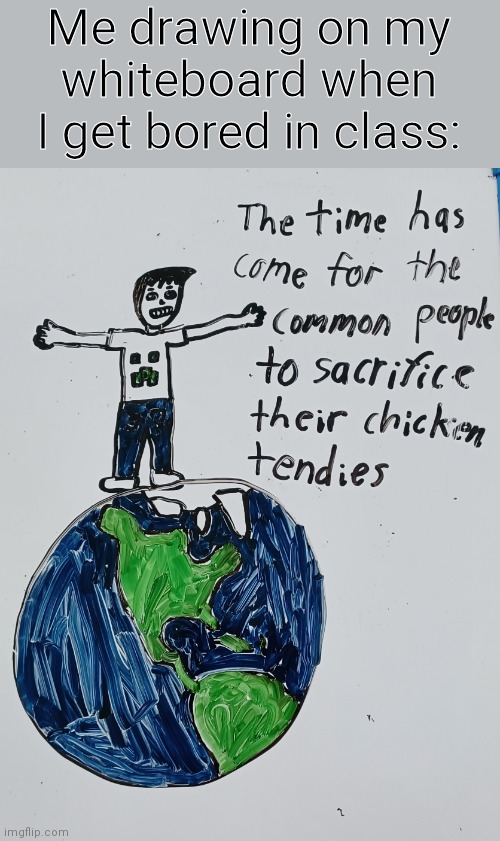 Me drawing on my
whiteboard when
I get bored in class:
The time has
come for the
common people
to sacrifice
their chicken
tendies
imgflip.com